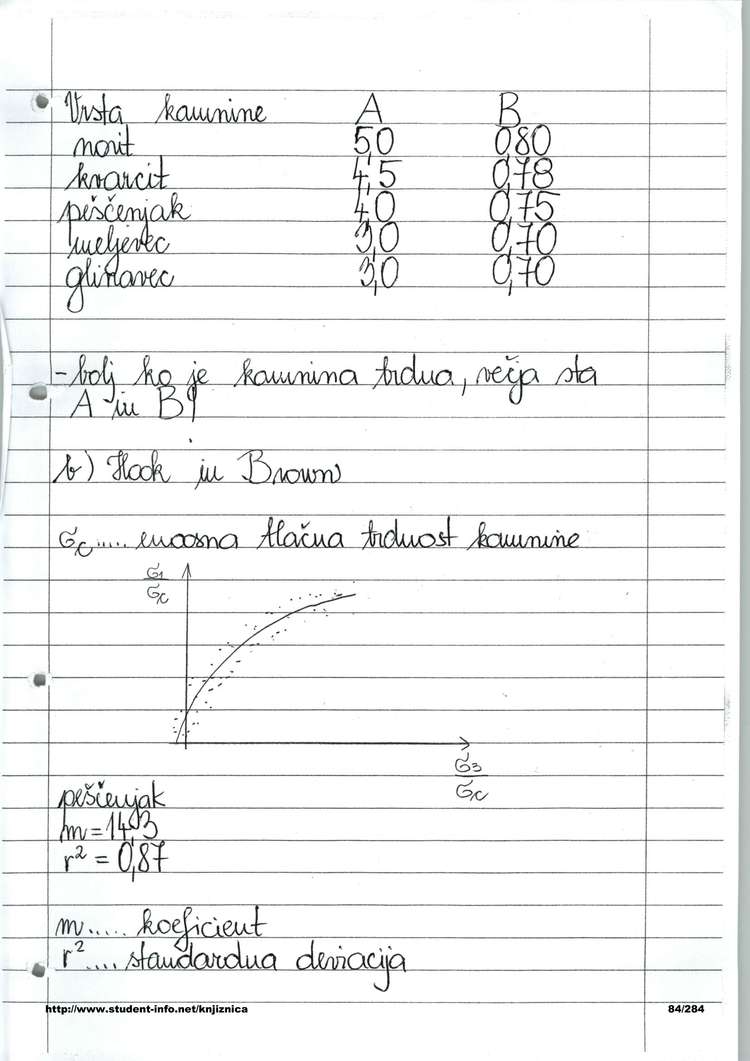 Vrsta kamnine A B
norit 5,0 0,80
kvarcit 4,5 0,78
peščenjak 4,0 0,75
meljevec 3,0 0,70
glinavec 3,0 0,70
- bolj ko je kamnina trdna, večja sta
A in B!
b) Hook in Brown
σc..... enoosna tlačna trdnost kamnine
σ1
σc
σ3
σc
peščenjak
m = 14,3
r² = 0,87
m..... koeficient
r².... standardna deviacija
http://www.student-info.net/knjiznica 84/284